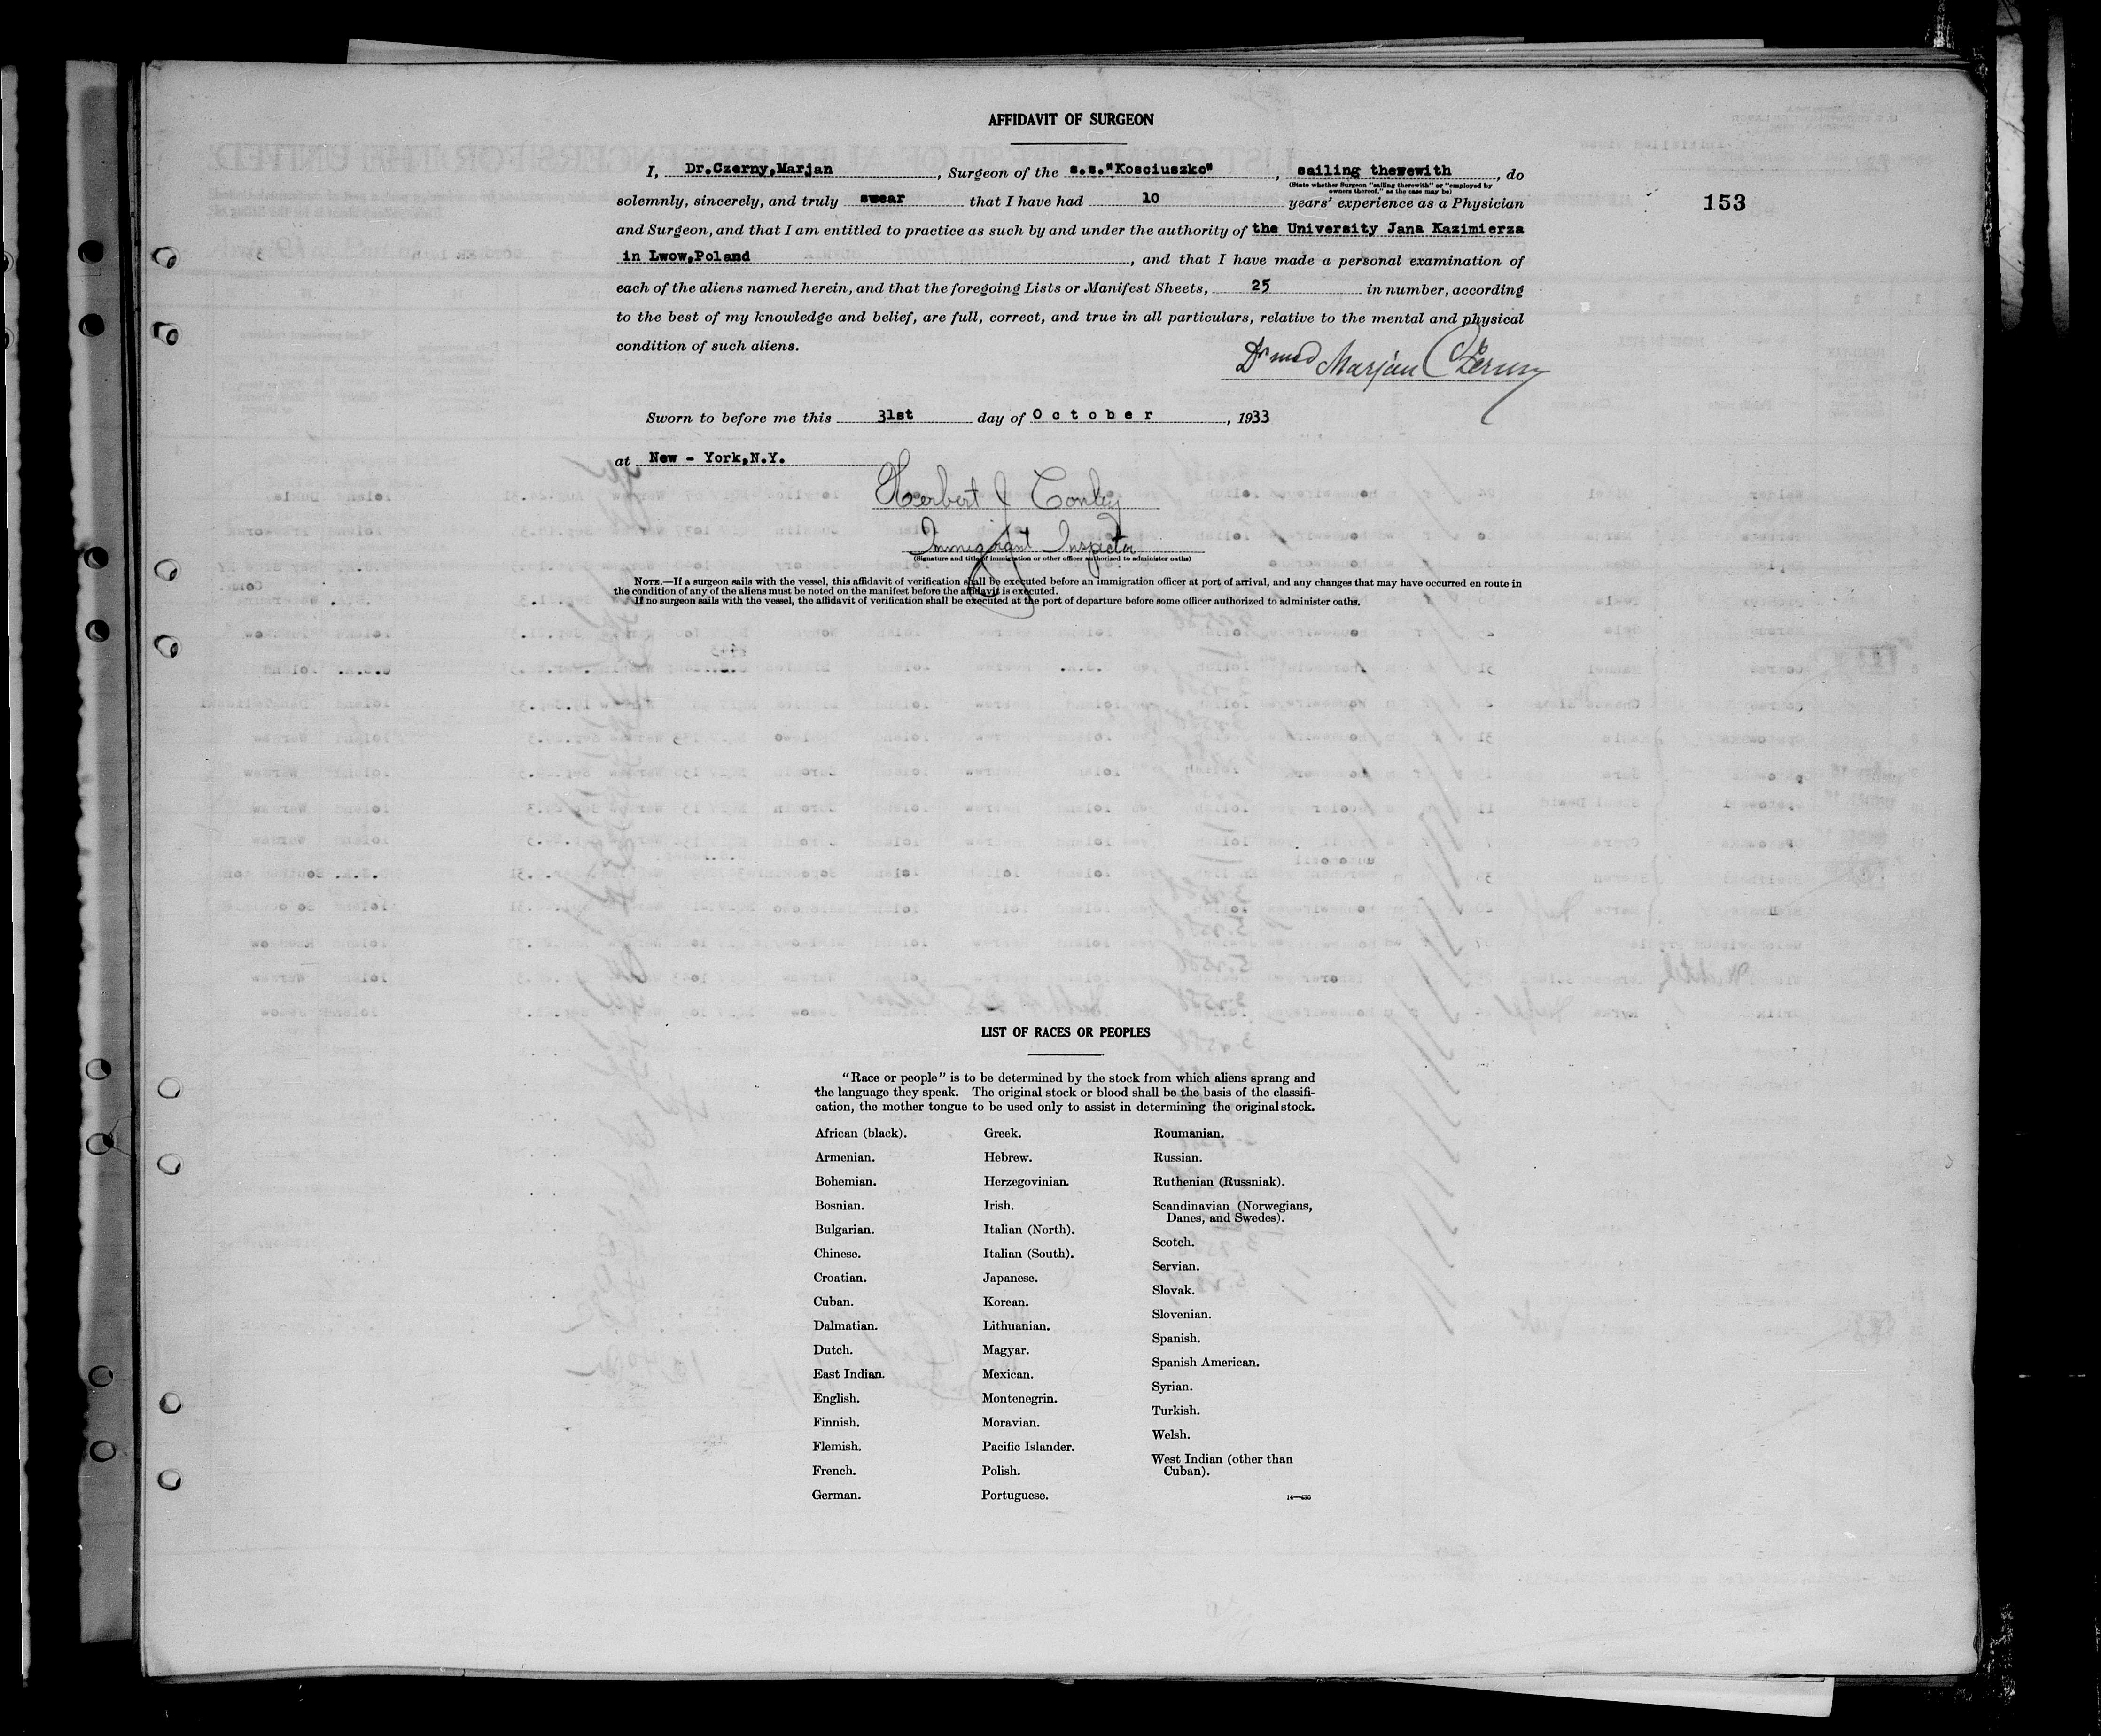 AFFIDAVIT OF SURGEON
I, Dr.Czerny,Marjan, Surgeon of the s.s."Kosciuszko", sailing therewith, do
(State whether Surgeon "sailing therewith" or "employed by
owners thereof," as the case may be)
153
solemnly, sincerely, and truly swear that I have had 10 years' experience as a Physician
and Surgeon, and that I am entitled to practice as such by and under the authority of the University Jana Kazimierza
in Lwow,Poland, and that I have made a personal examination of
each of the aliens named herein, and that the foregoing Lists or Manifest Sheets, 25 in number, according
to the best of my knowledge and belief, are full, correct, and true in all particulars, relative to the mental and physical
condition of such aliens.
Dr med Marjan Czerny
Sworn to before me this 31st day of October, 1933
at New - York,N.Y.
Herbert J Conley
Immigrant Inspector
(Signature and title of immigration or other officer authorized to administer oaths)
NOTE.—If a surgeon sails with the vessel, this affidavit of verification shall be executed before an immigration officer at port of arrival, and any changes that may have occurred en route in
the condition of any of the aliens must be noted on the manifest before the affidavit is executed.
If no surgeon sails with the vessel, the affidavit of verification shall be executed at the port of departure before some officer authorized to administer oaths.
LIST OF RACES OR PEOPLES
"Race or people" is to be determined by the stock from which aliens sprang and
the language they speak. The original stock or blood shall be the basis of the classifi-
cation, the mother tongue to be used only to assist in determining the original stock.
African (black).
Armenian.
Bohemian.
Bosnian.
Bulgarian.
Chinese.
Croatian.
Cuban.
Dalmatian.
Dutch.
East Indian.
English.
Finnish.
Flemish.
French.
German.
Greek.
Hebrew.
Herzegovinian.
Irish.
Italian (North).
Italian (South).
Japanese.
Korean.
Lithuanian.
Magyar.
Mexican.
Montenegrin.
Moravian.
Pacific Islander.
Polish.
Portuguese.
Roumanian.
Russian.
Ruthenian (Russniak).
Scandinavian (Norwegians,
Danes, and Swedes).
Scotch.
Servian.
Slovak.
Slovenian.
Spanish.
Spanish American.
Syrian.
Turkish.
Welsh.
West Indian (other than
Cuban).